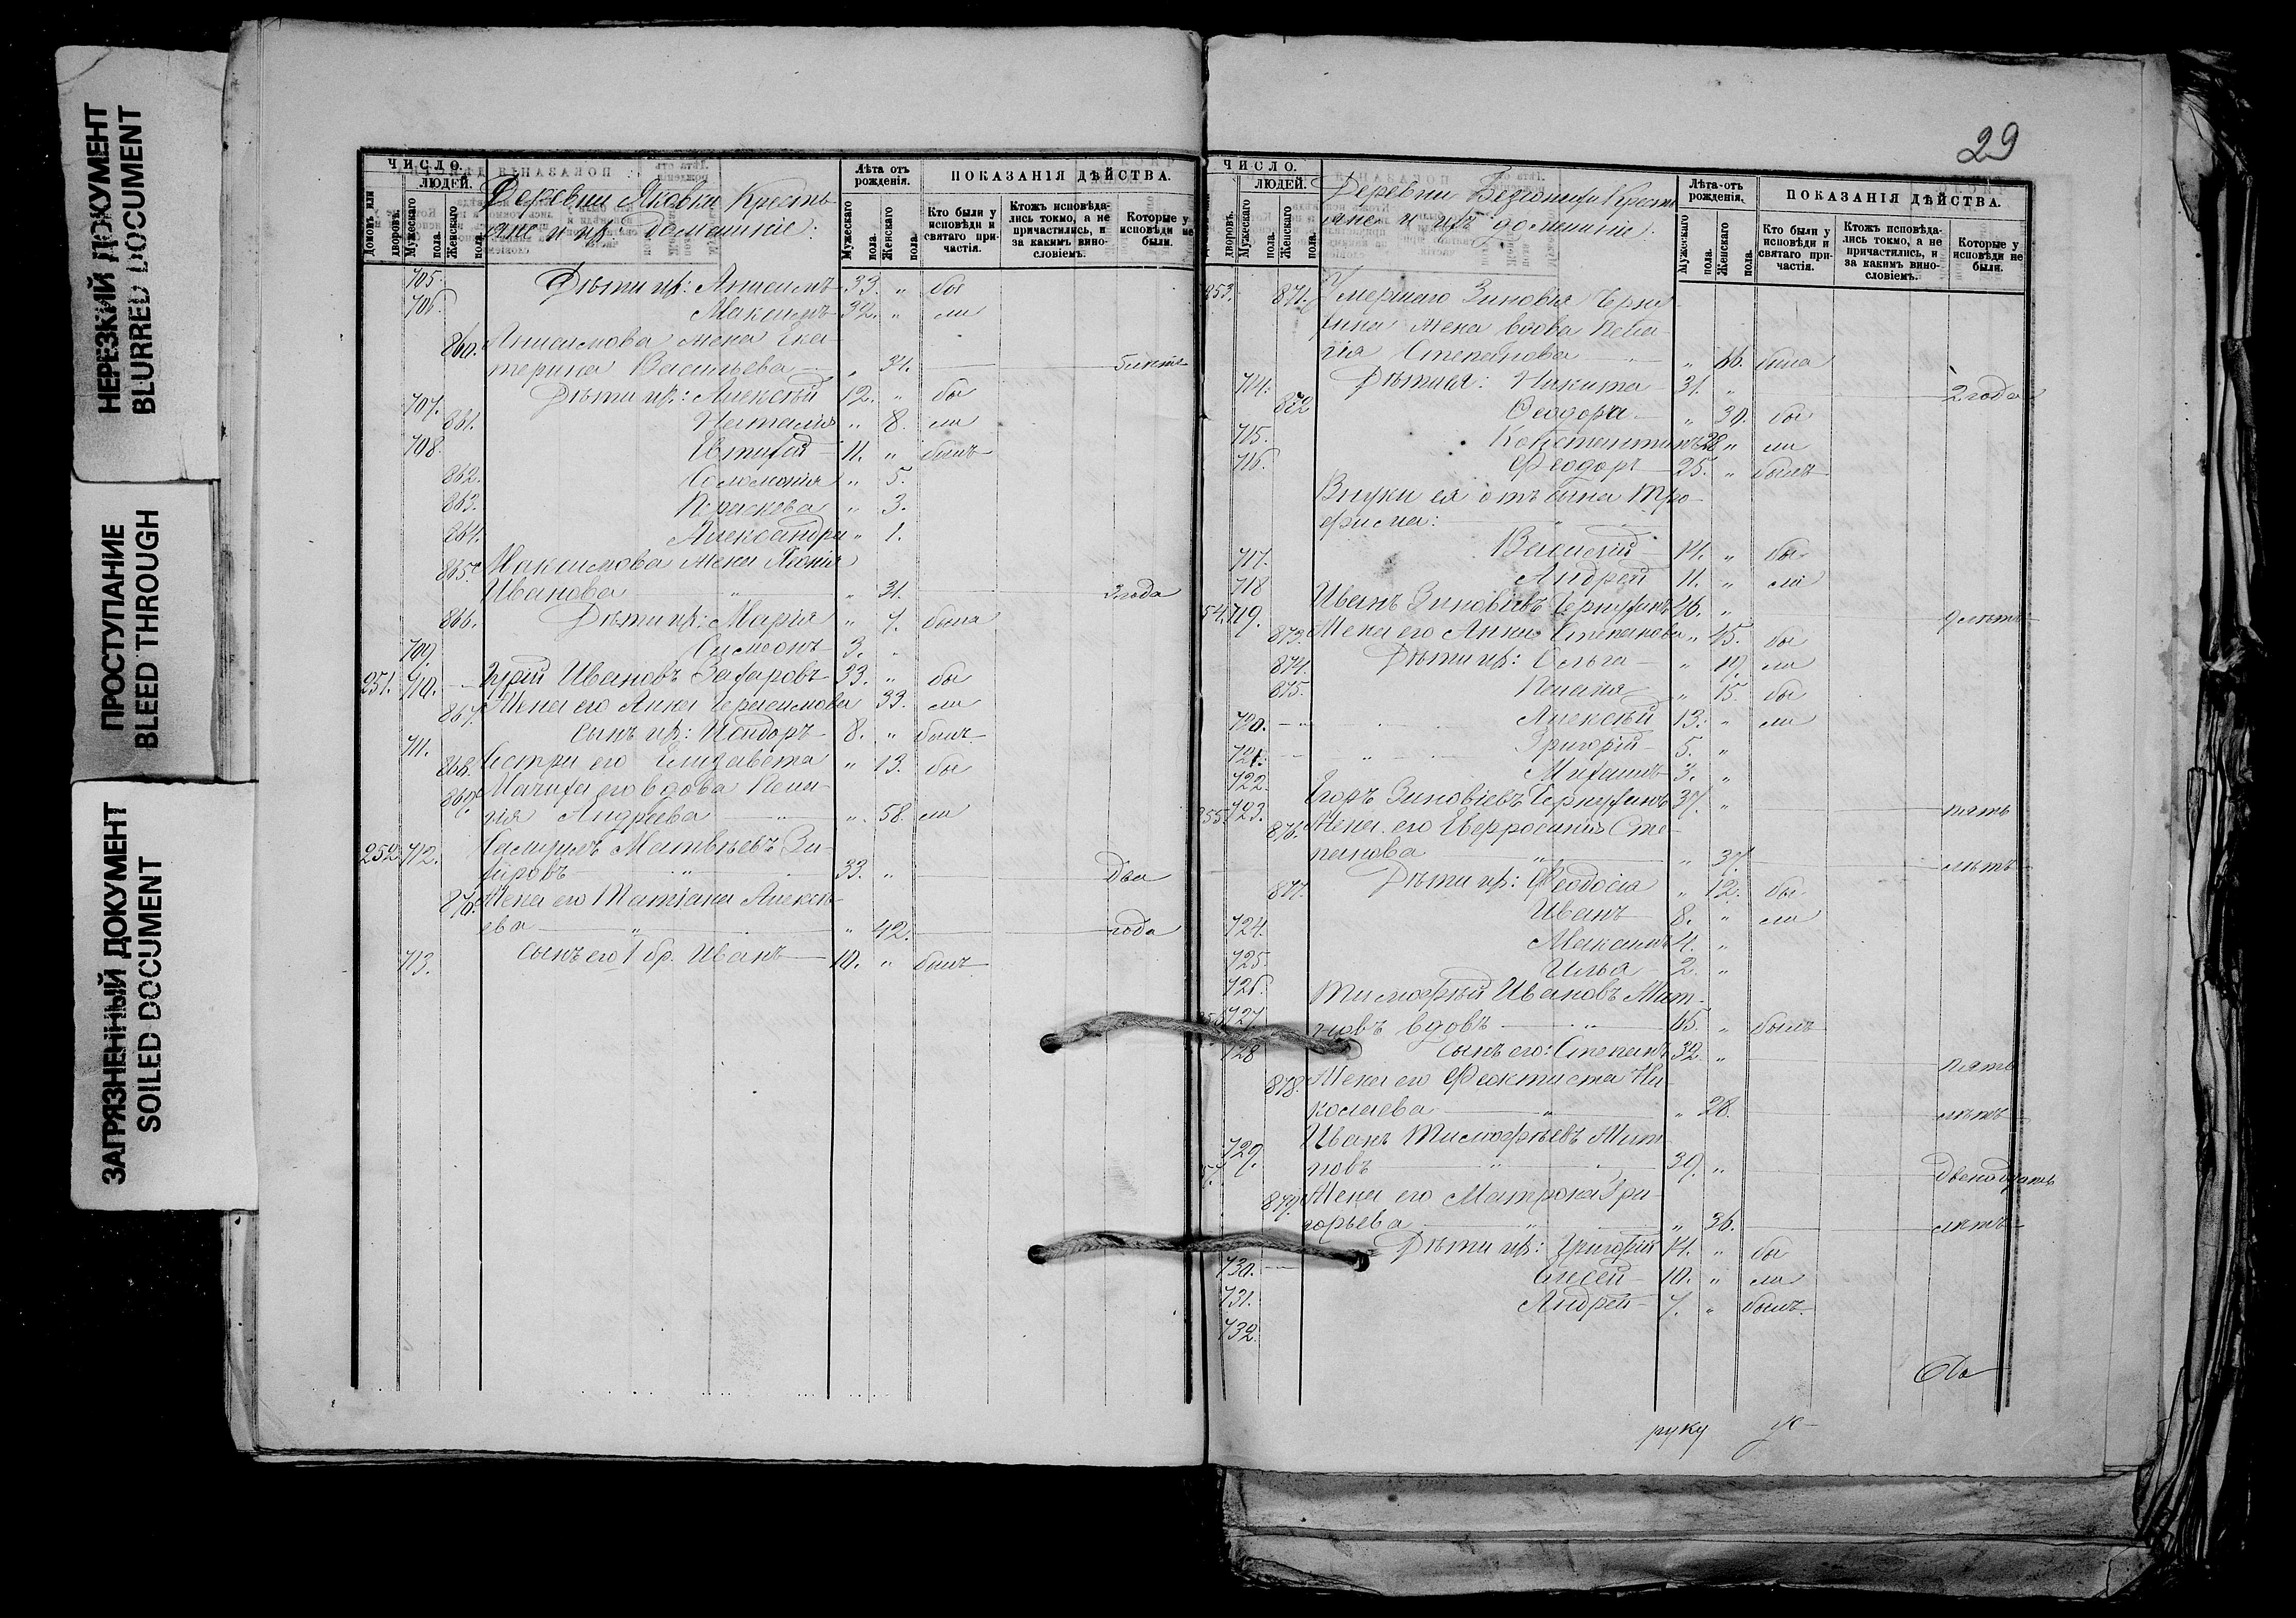 НЕРЕЗКИЙ ДОКУМЕНТ
BLURRED DOCUMENT
ПРОСТУПАНИЕ
BLEED THROUGH
ЗАГРЯЗНЕННЫЙ ДОКУМЕНТ
SOILED DOCUMENT
ЧИСЛО.
ЛЮДЕЙ.
Домовъ или дворовъ.
Мужескаго пола.
Женскаго пола.
Деревни Яковки Кресть
яне и ихъ домашніе:
Лѣта отъ рожденія.
Мужескаго пола.
Женскаго пола.
ПОКАЗАНІЯ ДѢЙСТВА.
Кто были у исповѣди и святаго причастія.
Ктожъ исповѣда-лись токмо, а не причастились, и за какимъ вино-словіемъ.
Которые у исповѣди не были.
705. Дѣти ихъ: Анисимъ 33. " бы
706. Максимъ 32. " ли
860. Анисимова жена Ека
терина Васильева " 34. 5 лѣтъ
707. Дѣти ихъ: Алексѣй 12. " бы
861. Наталія " 8. ли
708. Евтихій 11. " былъ
862. Соломонія " 5.
863. Параскева " 3.
864. Александра " 1.
865. Максимова жена
Иванова " 31. 3 года
866. Дѣти ихъ: Марія " 7. была
709. Симеонъ 3. "
251. 710. Гурій Ивановъ Захаровъ 33. " бы
867. Жена его Анна Герасимова 33. ли
711. Сынъ ихъ: Исидоръ 8. " былъ
868. Сестра его Елизавета " 13. бы
869. Мачиха его вдова Пела-
гія Андреева " 58. ли
252. 712. Матвѣевъ За-
харовъ 33. " два
870. Жена его Татіана Алексѣ-
ева " 42. года
713. Сынъ его 1 бр. Иванъ 10. " былъ
29
ЧИСЛО.
ЛЮДЕЙ.
дворовъ.
Мужескаго пола.
Женскаго пола.
Деревни Крестъ
яне и ихъ домашніе:
Лѣта отъ рожденія.
Мужескаго пола.
Женскаго пола.
ПОКАЗАНІЯ ДѢЙСТВА.
Кто были у исповѣди и святаго причастія.
Ктожъ исповѣда-лись токмо, а не причастились, и за какимъ вино-словіемъ.
Которые у исповѣди не были.
253. 871. Умершаго Зиновія
жена вдова Пела-
гія Степанова " 66. была
714. Дѣти ея: Никита 31. " 2 года
872 Феодора " 30. бы
715. Константинъ 28 " ли
716. Феодоръ 25. " былъ
Внуки ея отъ сына Тро-
фима:
717. Василій 14. " бы
718 Андрей 11. " ли
54. 719. Иванъ Зиновіевъ 46. " 9 лѣтъ
873. Жена его Анна Степанова " 45. бы
874. Дѣти ихъ: Ольга " 19. ли
875. Пелагія " 15. бы
720. Алексѣй 13. " ли
721. Григорій 5. "
722. Михаилъ 3. "
255. 723. Егоръ Зиновіевъ 37. " пять
876. Жена его Евфросинія Сте-
панова " 37. лѣтъ
877. Дѣти ихъ: Феодосія " 12. бы
724. Иванъ 8. " ли
725. Максимъ 4. "
726. Илья 2. "
727. Тимофѣй Ивановъ
вдовъ 65. " былъ
728 Сынъ его: Степанъ 32. " пять
878. Жена его Феоктиста Ни-
колаева " 28. лѣтъ
729. Иванъ Тимофѣевъ
39. " двенадцать
879. Жена его Матрона Гри-
горьева " 36. лѣтъ
730. Дѣти ихъ: Григорій 14. " бы
731. Елисей 10. " ли
732. Андрей 7. " былъ
руку